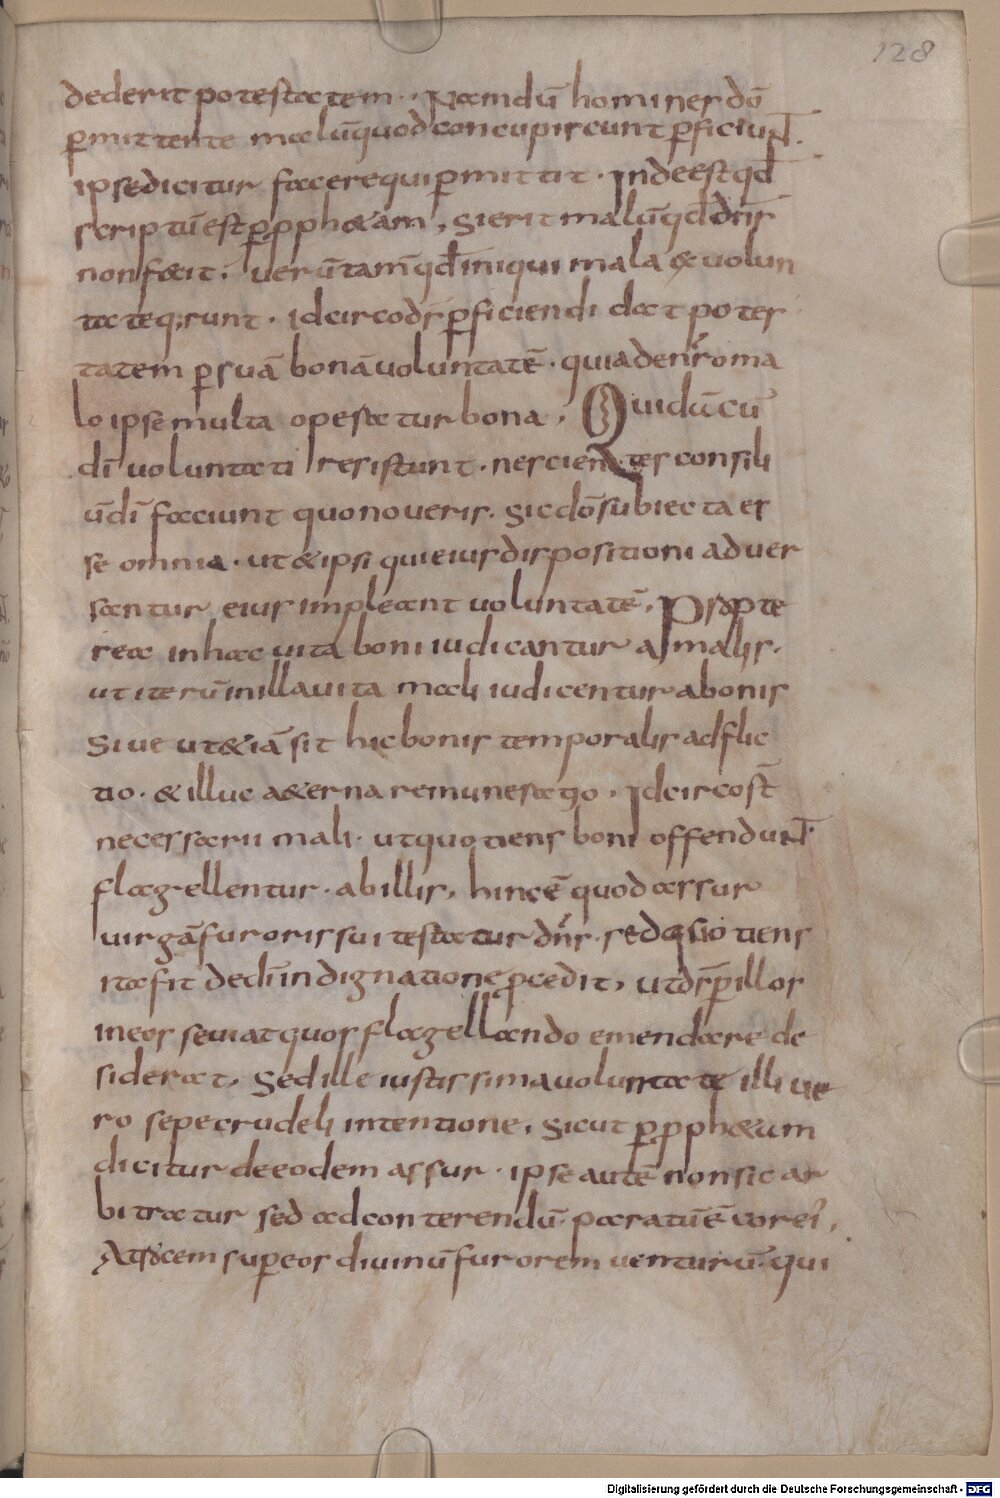 128
dederit potestatem. Namdū homines dō
ꝑmittente malūquod concupiscunt ꝑficiuNT.
ipsedicitur facerequiꝑmittit. Indeestqđ
scriptūest ꝑꝓph&am, Sierit malūqđ dn̄s
nonfecit. uerūtam̄ qđiniqui mala & uolun
tateq;runt. idcircods̄ ꝑficiendi dat potes
tatem ꝑsuā bonāuoluntatē. quiadenr̄oma
lo ipsemulta operatur bona. Quidūcū
dī uoluntati resistunt. nescientes consili
ūdī faciunt quonoueris. Sicdōsubiecta es
se omnia. ut&ipsi quieiusdispositioni aduer
santur eius impleant uoluntatē. Propte
rea inhac uita boni iudicantur a malis.
ut iterūinillauita mali iudicentur abonis
Siue ut&iā sit hic bonis temporalis adflic
tio. & illuc a&erna remuneratio. Idcircost̄
necessarii mali. utquotiens boni offenduNT.
flagellentur. abillis, hincē quodassur
uirgāfuroris sui testatur dn̄s. sed quotiens
itafit dedīindignatione ꝓcedit, utds̄ ꝑillos
ineos seuiat quos flagellando emendare de
siderat. Sedille iustissimauoluntate illi ue
ro sepe crudeli intentione. Sicut ꝑꝓph&am
dicitur deeodem assur. ipse autē nonsic ar
bitratur sed adconterendū. paratūē cor ei'.
superos diuinūfurorem uenturū. qui
Digitalisierung gefördert durch die Deutsche Forschungsgemeinschaft - DFG